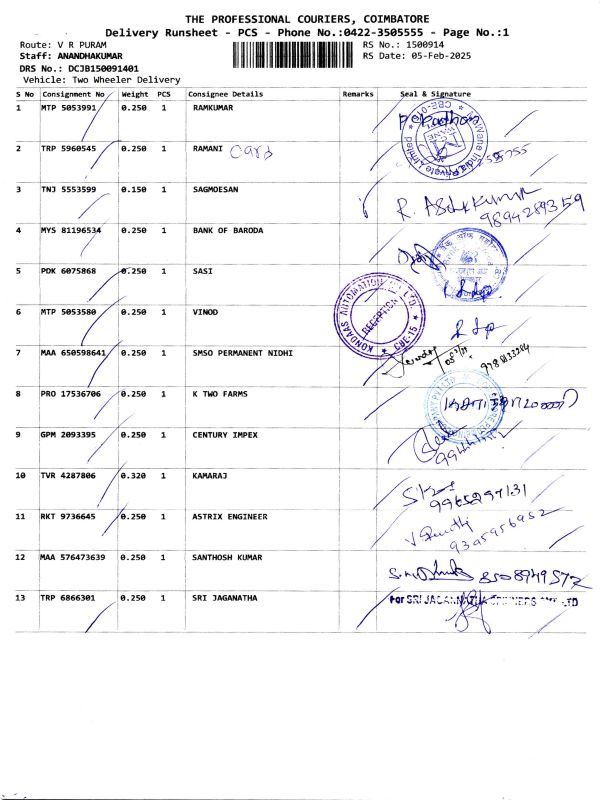 THE PROFESSIONAL COURIERS, COIMBATORE
Delivery Runsheet - PCS - Phone No.:0422-3505555 - Page No.:1
Route: V R PURAM RS No.: 1500914
Staff: ANANDHAKUMAR RS Date: 05-Feb-2025
DRS No.: DCJB150091401
Vehicle: Two Wheeler Delivery
S No Consignment No Weight PCS Consignee Details Remarks Seal & Signature
1 MTP 5053991 0.250 1 RAMKUMAR
2 TRP 5960545 0.250 1 RAMANI Card
3 TNJ 5553599 0.150 1 SAGMOESAN R. 9894289359
4 MYS 81196534 0.250 1 BANK OF BARODA
5 PDK 6075868 0.250 1 SASI
KONDAAS AUTOMATION PVT LTD. RECEPTION CBE-15
6 MTP 5053580 0.250 1 VINOD
7 MAA 650598641 0.250 1 SMSO PERMANENT NIDHI
8 PRO 17536706 0.250 1 K TWO FARMS
9 GPM 2093395 0.250 1 CENTURY IMPEX
10 TVR 4287806 0.320 1 KAMARAJ 9965297131
11 RKT 9736645 0.250 1 ASTRIX ENGINEER 9395956952
12 MAA 576473639 0.250 1 SANTHOSH KUMAR 8508949572
13 TRP 6866301 0.250 1 SRI JAGANATHA For SRI JAGANNATHA SPINNERS PVT LTD